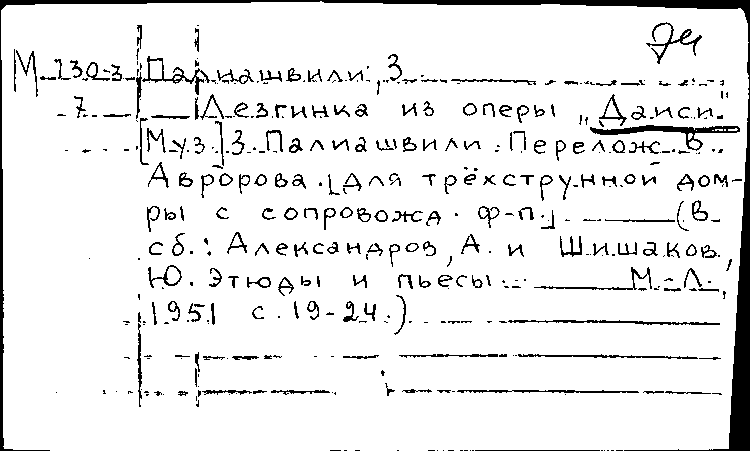 74
М 130-3 Палиашвили, З.
7 Лезгинка из оперы „Даиси"
[Муз.] З. Палиашвили. Перелож. В.
Авророва. [для трёхструнной дом-
ры с сопровожд. ф-п.] (В
сб.: Александров, А. и Шишаков,
Ю. Этюды и пьесы. М.-Л.,
1951 с. 19-24.)